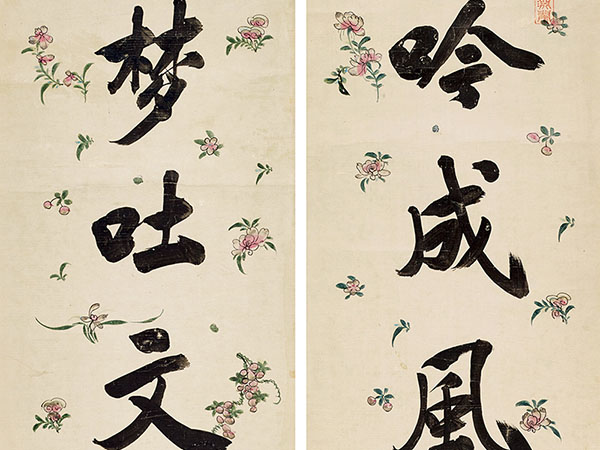 吟成風
梦吐文